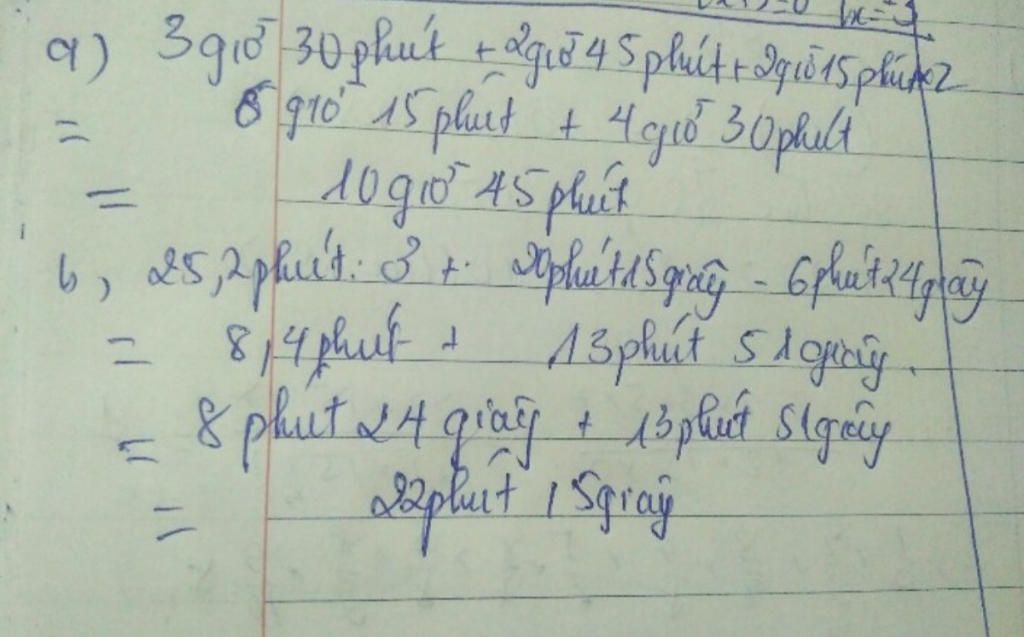 a) 3 giờ 30 phút + 2 giờ 45 phút + 2 giờ 15 phút x 2
= 6 giờ 15 phút + 4 giờ 30 phút
= 10 giờ 45 phút
b, 25,2 phút : 3 + 20 phút 15 giây - 6 phút 24 giây
= 8,4 phút + 13 phút 51 giây.
= 8 phút 24 giây + 13 phút 51 giây
= 22 phút 15 giây